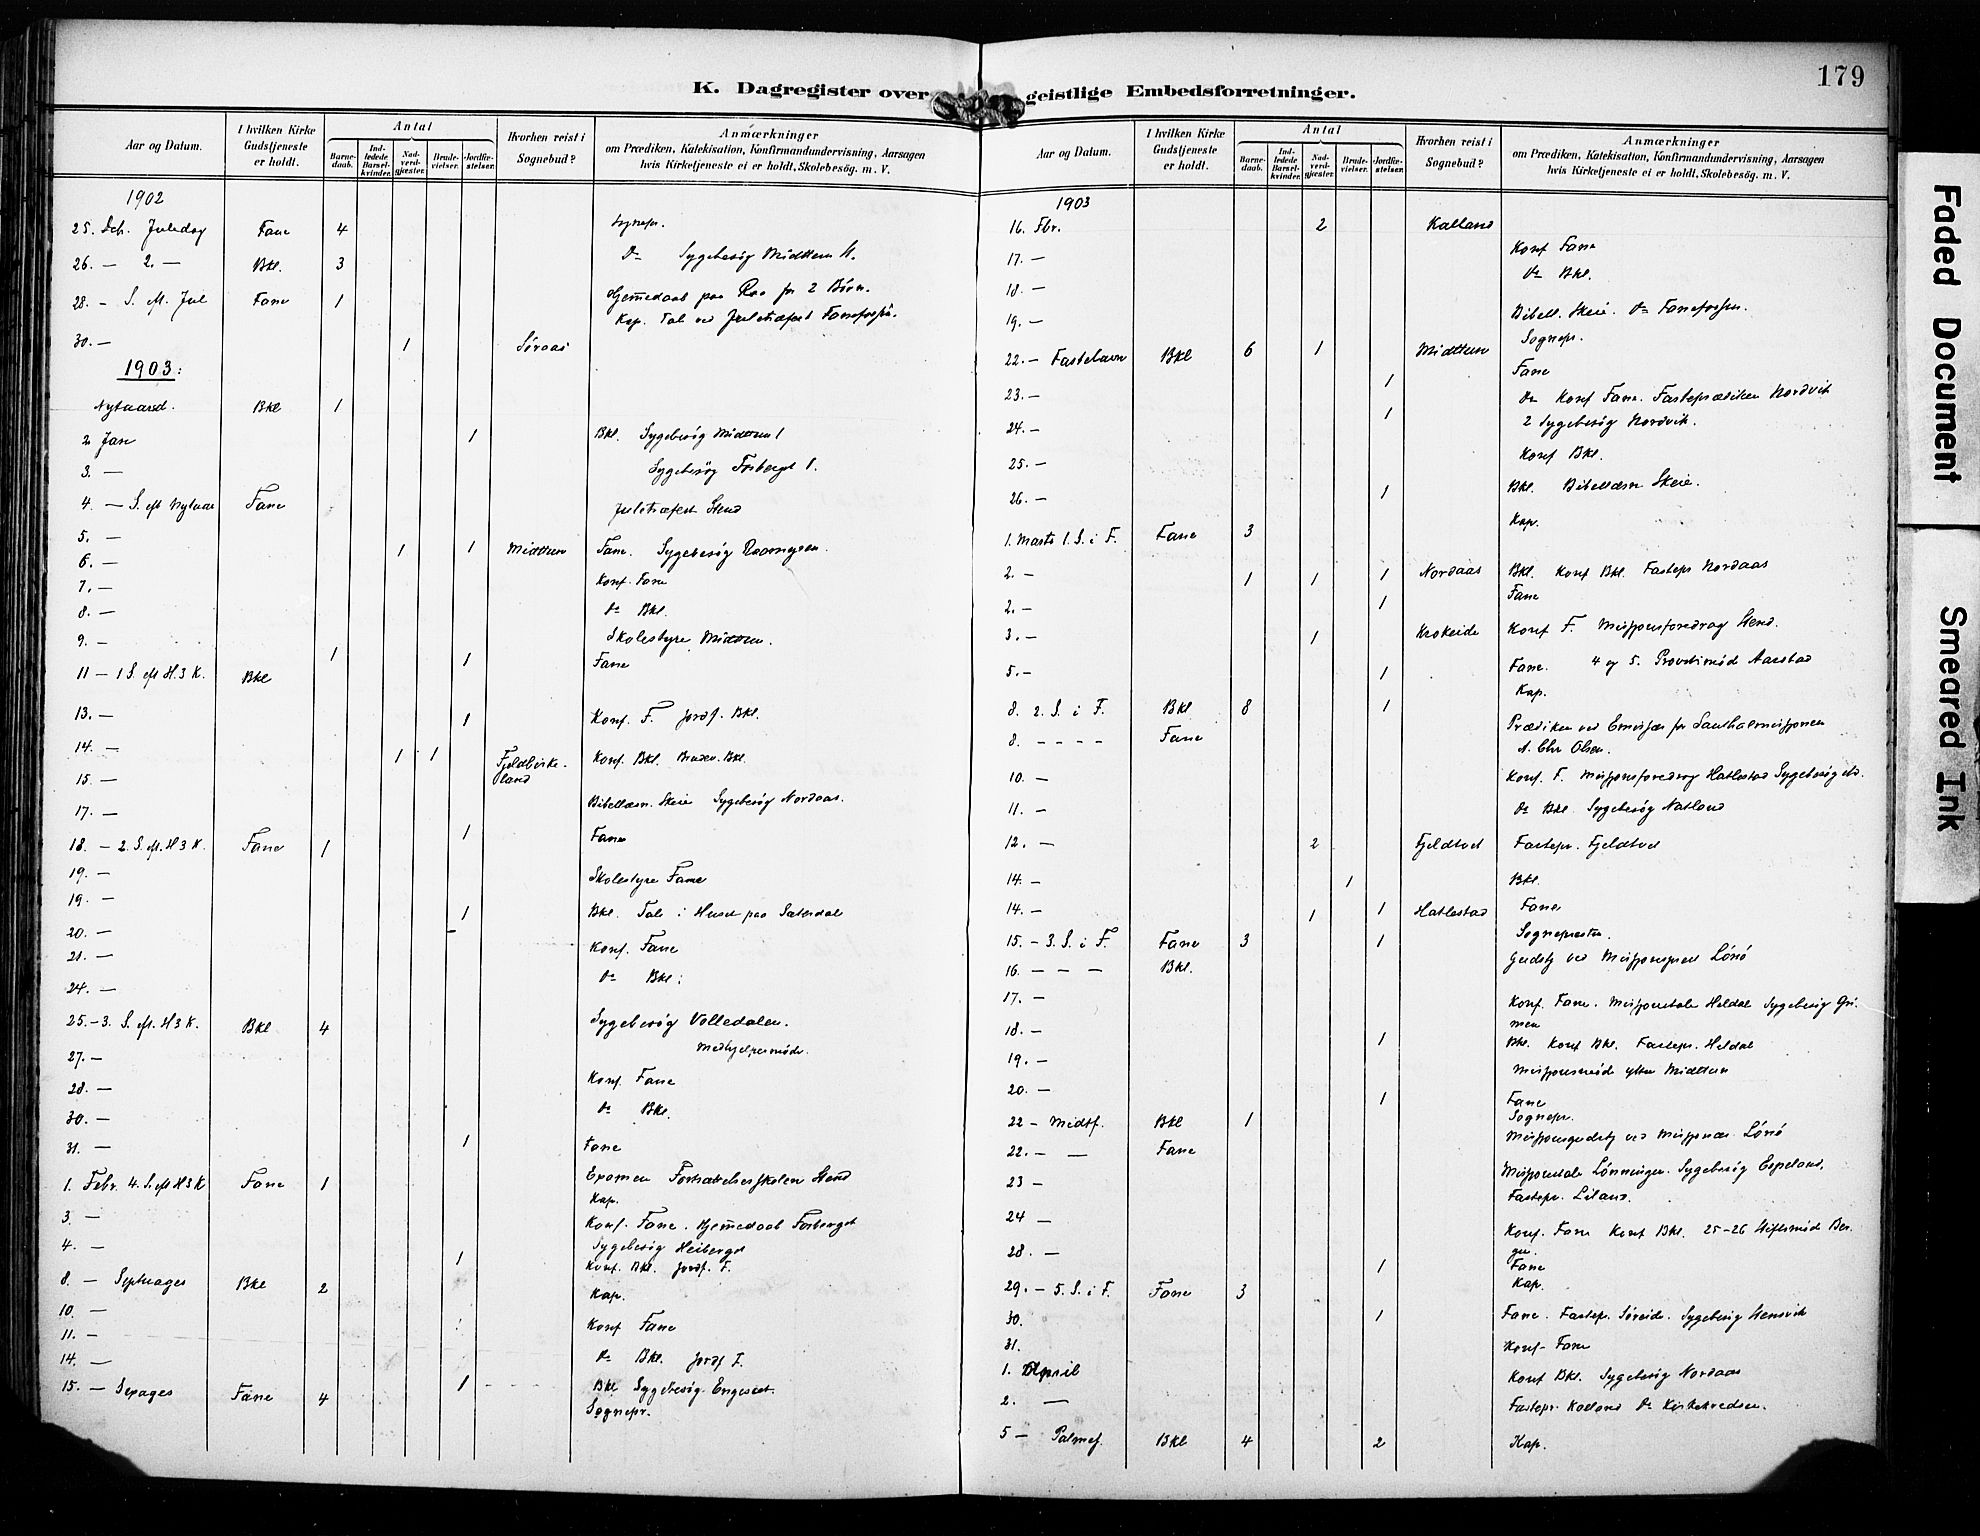 179
K. Dagregister over geistlige Embedsforretninger.
Aar og Datum.
I hvilken Kirke Gudstjeneste er holdt.
Antal
Barnedaab.
Indledede Barselkvinder.
Nadverdgjæster.
Brudevielser.
Jordfæstelser.
Hvorhen reist i Sognebud?
Anmærkninger
om Prædiken, Katekisation, Konfirmandundervisning, Aarsagen
hvis Kirketjeneste ei er holdt, Skolebesøg. m. V.
1902
25. Juledag Fane 4 Sognepr.
26. — 2. — Bkl. 3 Do Sygebesøg Midttun
28. — S. M. Jul Fane 1 Hjemmedaab paa Raa for 2 Børn.
Kap. Tal ved Juletræfest
30. — 1 Søraas
1903:
Nytaarsd. Bkl 1
2 Jan 1 Bkl. Sygebesøg Midttun 1
3. — Sygebesøg
4. — S. eft Nytaar Fane Juletræfest Stend
5. —
6. — 1 1 Midttun Fane. Sygebesøg
7. — Konf. Fane
8. — Do Bkl.
9. — Skolestyre Midttun.
11 — 1 S. eft H. 3 K. Bkl 1 1 Fane
13. — 1 Konf. F. Jordf. Bkl.
14. — 1 1 Fjeldbirkeland Konf. Bkl. Brudev. Bkl.
15. —
17. — Bibellæsn. Skeie Sygebesøg Nordaas.
18. — 2. S. eft. H 3 K. Fane 1 1 Fane
19. — Skolestyre Fane
19. — 1 Bkl. Tale i Huset paa Sæterdal
20. —
21. — Konf. Fane
24. — Do Bkl.
25. — 3. S. eft. H 3 K. Bkl 4 Sygebesøg
27. —
28. — Konf. Fane
30. — Do Bkl.
31. — 1 Fane
1. Febr. 4. S. eft H 3 K Fane 1 Examen Fortsættelsesskolen Stend
Kap.
3. — Konf. Fane. Hjemmedaab
4. — 1 Sygebesøg
Konf. Bkl. Jordf. F.
8. — Septuages Bkl 2 Kap.
10. —
11. — Konf Fane
14. — Do Bkl. Jordf F.
15. — Sexages Fane 4 1 Bkl Sygebesøg
Sognepr.
Aar og Datum.
I hvilken Kirke Gudstjeneste er holdt.
Antal
Barnedaab.
Indledede Barselkvinder.
Nadverdgjæster.
Brudevielser.
Jordfæstelser.
Hvorhen reist i Sognebud?
Anmærkninger
om Prædiken, Katekisation, Konfirmandundervisning, Aarsagen
hvis Kirketjeneste ei er holdt, Skolebesøg. m. V.
1903
16. Fbr. 2 Kalland
17. — Konf Fane
18. — Do Bkl.
19. — Bibell. Skeie. Do
22. — Fastelavn Bkl 6 1 Midttun Sognepr.
23. — 1 Fane
24. — 1 Do Konf Fane. Fasteprædiken Nordvik
2 Sygebesøg Nordvik.
25. — Konf Bkl.
26. — 1 Bkl. Bibellæsn Skeie.
1. Marts 1. S. i F. Fane 3 Kap.
2. — 1 1 1 Nordaas Bkl. Konf Bkl. Fastepr Nordaas
2. — 1 Fane
3. — 1 Krokeide Konf F. Missionsforedrag Stend.
5. — 1 Fane. 4 og 5. Provstimøde Aarstad
8. 2. S. i F. Bkl 8 1 Kap.
8. – – – – Fane Prædiken ved Emissær for Santhalmissionen
A. Chr Olsen.
10. — Konf. F. Missionsforedrag Hatlestad
11. — Do Bkl Sygebesøg Natland
12. — 2 Fjeldtvet Fastepr. Fjeldtvet
14. — 1 Bkl.
14. — 1 1 Hatlestad Fane
15. — 3. S. i F. Fane 3 1 Sognepresten.
16. — — — Bkl. Gudstj ved
17. — Konf. Fane. Missionstale Heldal Sygebesøg Grimen
18. — 1 Bkl. Konf Bkl. Fastepr. Heldal
19. — Midttun
20. — 1 Fane
22 — Midtf. Bkl 1 Sognepr.
22. — — Fane Missionsgudstj ved
23 — Missionstale Lønninger. Sygebesøg Espeland.
Fastepr. Liland.
24 —
28. — 1 Konf. Fane Konf Bkl. 25–26 Stiftsmøde Bergen.
Fane
29. — 5. S. i F. Fane 3 Kap.
30. 1 Fane. Fastepr. Søreide. Sygebesøg
31. Konf. Fane
1. April Konf Bkl. Sygebesøg Nordaas
2. — Fastepr. Do
5 — Palmes. Bkl 4 2 Kap.
Faded Document
Smeared Ink